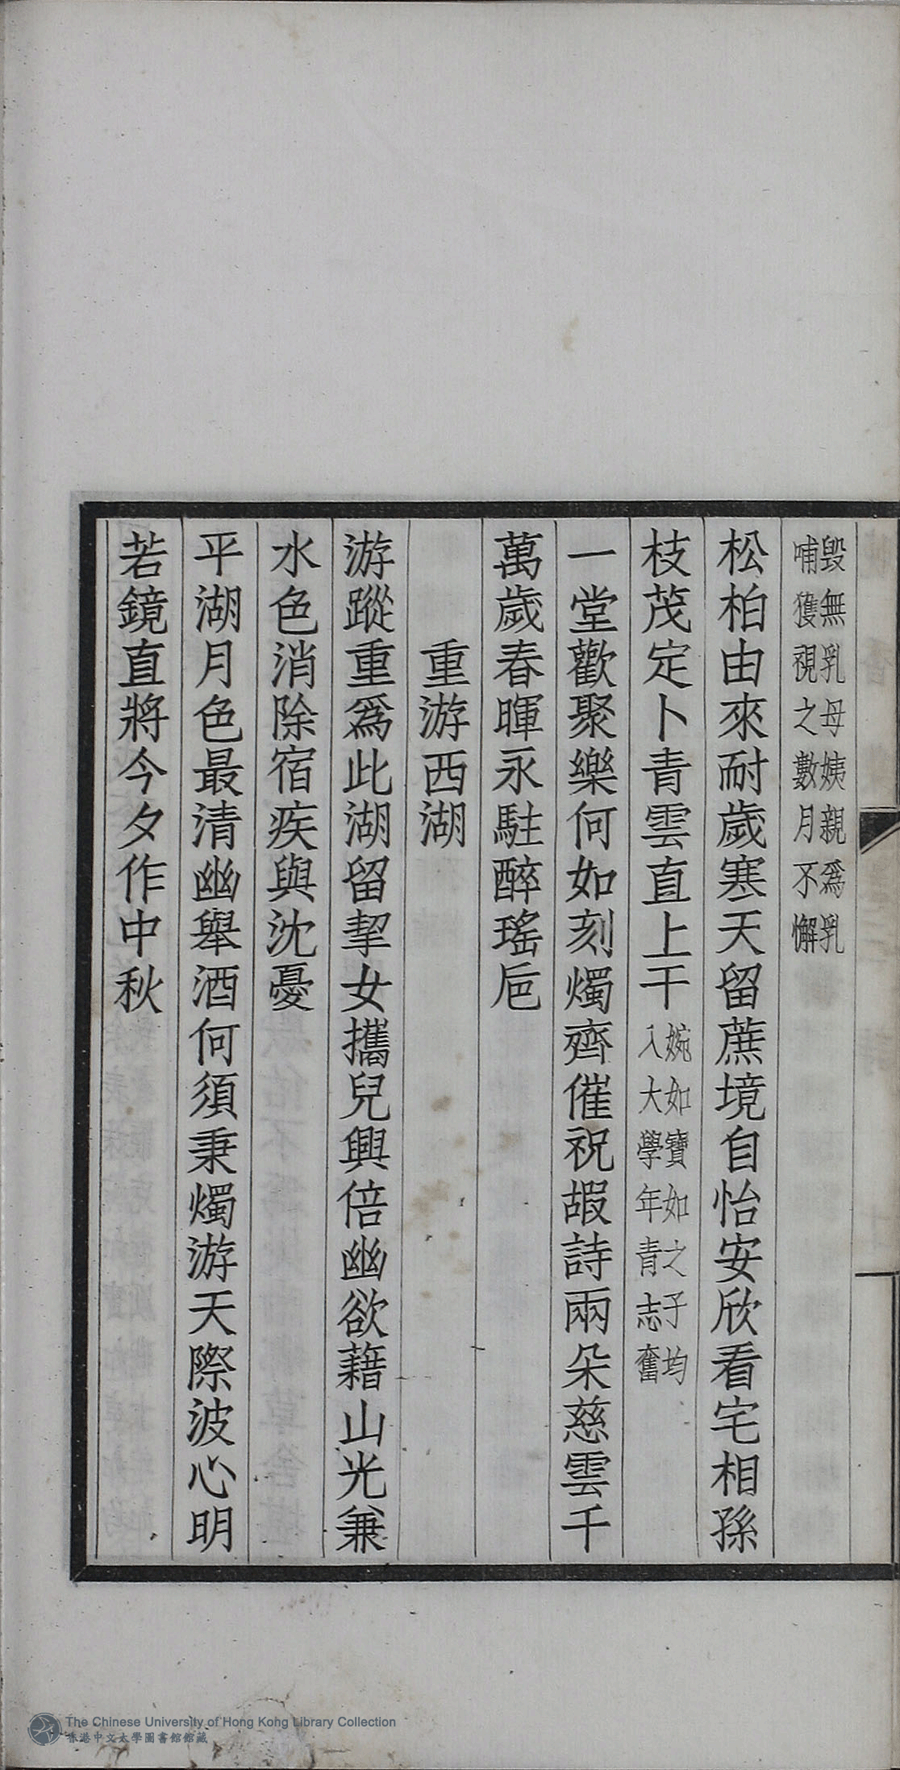 毀無乳母姨親爲乳
哺獲視之數月不懈
松柏由來耐歲寒天留蔗境自怡安欣看宅相孫
枝茂定卜青雲直上干婉如寶如之子均
入大學年青志奮
一堂歡聚樂何如刻燭齊催祝嘏詩兩朵慈雲千
萬歲春暉永駐醉瑤卮
重游西湖
游蹤重爲此湖留挈女攜兒興倍幽欲藉山光兼
水色消除宿疾與沈憂
平湖月色最清幽舉酒何須秉燭游天際波心明
若鏡直將今夕作中秋
The Chinese University of Hong Kong Library Collection
香港中文大學圖書館館藏